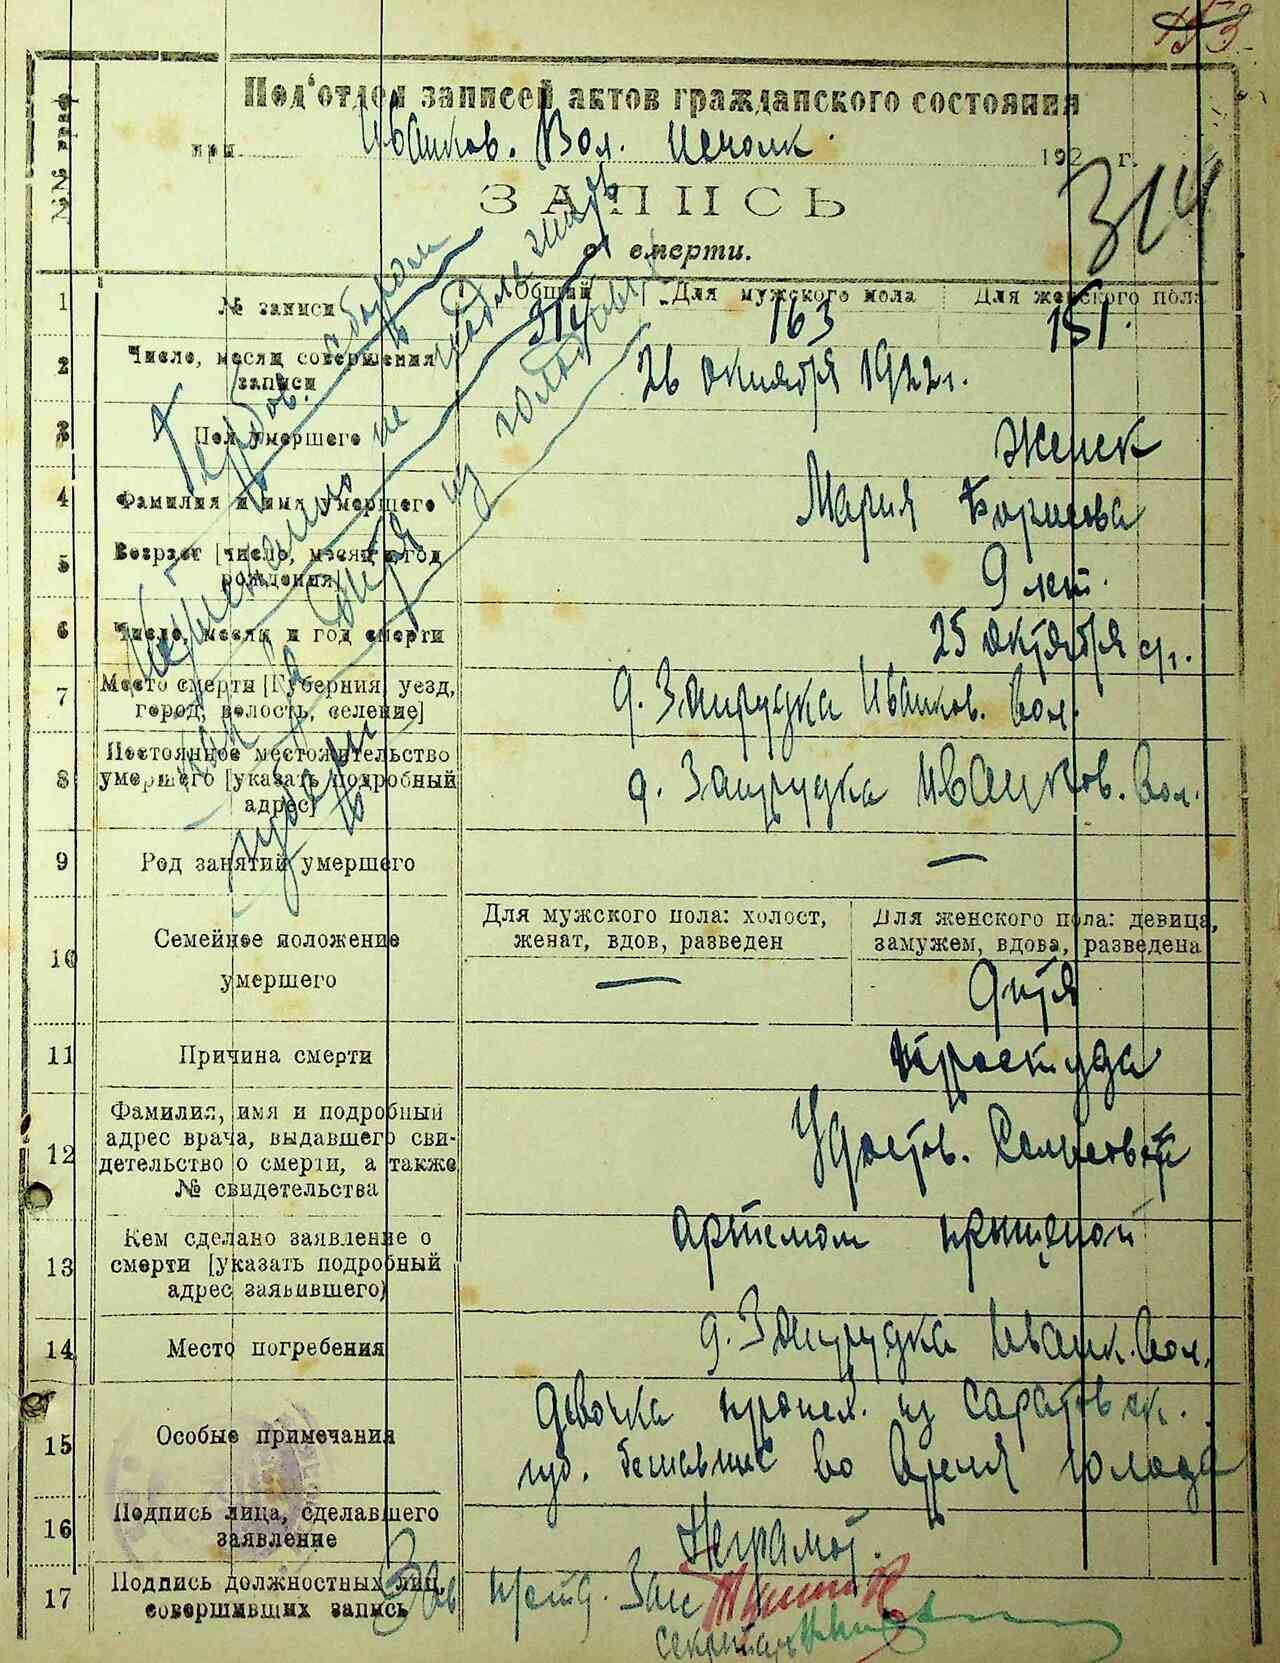 153
Под'отдел записей актов гражданского состояния
при Иванков. Вол. Исполк. 192 г.
314
ЗАПИСЬ
о смерти.
№№ граф
1 № записи Общий Для мужского пола Для женского пола
314 163 151.
2 Число, месяц совершения записи 26 октября 1922 г.
3 Пол умершего Женск
4 Фамилия и имя умершего Мария Борисова
5 Возраст [число, месяц и год рождения] 9 лет.
6 Число, месяц и год смерти 25 октября с/г.
7 Место смерти [Губерния, уезд, город, волость, селение] д. Запрудка Иванков. Вол.
8 Постоянное местожительство умершего [указать подробный адрес] д. Запрудка Иванков. Вол.
9 Род занятий умершего —
10 Семейное положение умершего
Для мужского пола: холост, женат, вдов, разведен
Для женского пола: девица, замужем, вдова, разведена
— дитя
11 Причина смерти простуда
12 Фамилия, имя и подробный адрес врача, выдавшего свидетельство о смерти, а также № свидетельства Удостов.
13 Кем сделано заявление о смерти [указать подробный адрес заявившего) Артемом
14 Место погребения д. Запрудка Иванк. Вол.
15 Особые примечания девочка происх. из Саратовск.
губ. бежавшие во время голода
16 Подпись лица, сделавшего заявление Неграмот.
17 Подпись должностных лиц, совершивших запись Зав
Секретарь